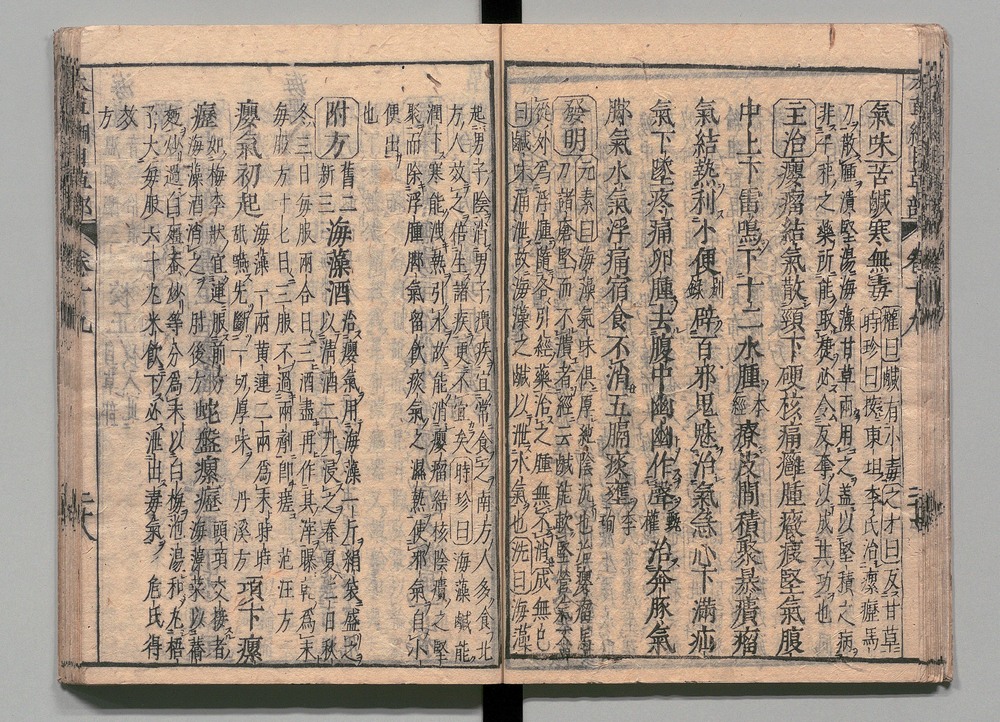 氣味苦鹹寒無毒權曰鹹有小毒之才曰反甘草
時珍曰按東垣李氏治瘰癧馬
刀散腫潰堅湯海藻甘草兩用之蓋以堅積之病
非平和之藥所能取捷必令反奪以成其功也
主治癭瘤結氣散頸下硬核痛癰腫癥瘕堅氣腹
中上下雷鳴下十二水腫本經療皮間積聚暴㿉瘤
氣結熱利小便別錄辟百邪鬼魅治氣急心下滿疝
氣下墜疼痛卵腫去腹中幽幽作聲甄權治奔豚氣
脚氣水氣浮痛宿食不消五膈痰壅李珣
發明元素曰海藻氣味俱厚純陰沉也治癭瘤馬
刀諸瘡堅而不潰者經云鹹能軟堅營氣不
從外為浮腫隨各引經藥治之腫無不消成無已
曰鹹味涌泄故海藻之鹹以泄水氣也詵曰海藻
起男子陰消男子㿉疾宜常食之南方人多食北
方人效之倍生諸疾更不宜矣時珍曰海藻鹹能
潤下寒能洩熱引水故能消癭瘤結核陰㿉之堅
聚而除浮腫脚氣留飲痰氣之濕熱使邪氣自小
便出也
附方舊二新三海藻酒治癭氣用海藻一斤絹袋盛之
以清酒二升浸之春夏二日秋
冬三日每服兩合日三酒盡再作其滓曝乾為末
每服方寸七日三服不過兩劑即瘥范汪方
癭氣初起海藻一兩黃連二兩為末時時
舐嚥先斷一切厚味丹溪方項下瘰
癧如梅李狀宜連服前方
海藻酒消之肘後方蛇盤瘰癧頭項交接者
海藻菜以蕎
麪炒過白殭蠶炒等分為末以白梅泡湯和丸梧
子大每服六十丸米飲下必泄出毒氣危氏得
效方
卷十九